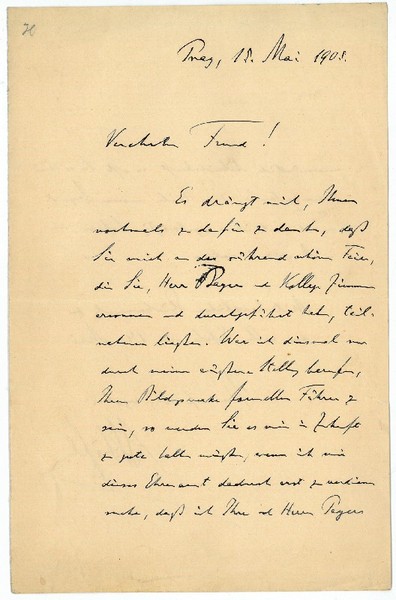 20
Prag, 18. Mai 1908.
Verehrter Freund!
Es drängt mich, Ihnen
nochmals dafür zu danken, daß
Sie mich an der rührend schönen Feier,
die Sie, Herr Pager und Kollege
ersonnen und durchgeführt haben, teil-
nehmen ließen. War ich diesmal nur
durch meine äußere Stellung berufen,
Ihrem Bildungswerke formeller Führer zu
sein, so werden Sie es mir in Zukunft
zu gute halten müssen, wenn ich mir
dieses Ehrenamt dadurch erst zu verdienen
suche, daß ich Ihre und Herrn Pagers